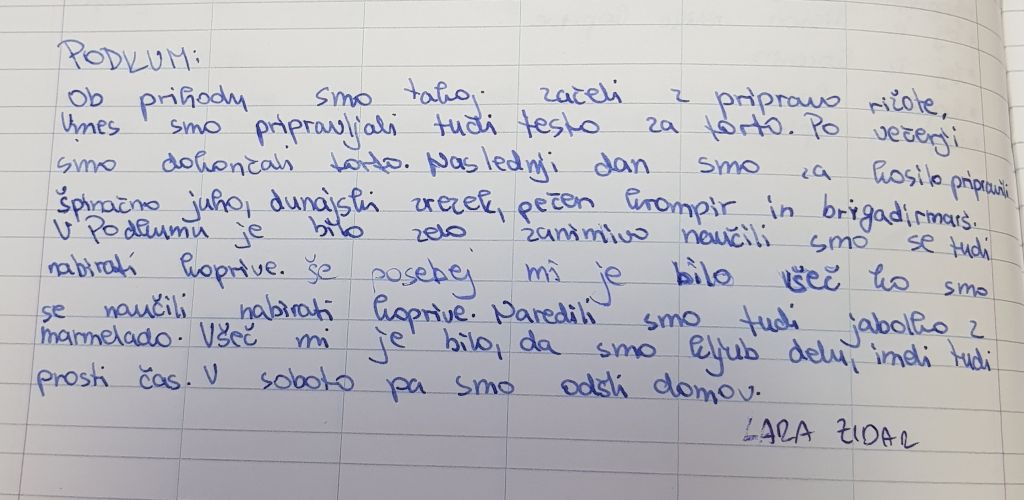 PODKUM:
Ob prihodu smo takoj začeli z pripravo rižote,
Vmes smo pripravljali tudi testo za torto. Po večerji
smo dokončali torto. Naslednji dan smo za kosilo pripravili
špinačno juho, dunajski zrezek, pečen krompir in brigadirmarš.
V Podkumu je bilo zelo zanimivo naučili smo se tudi
nabirati koprive. še posebej mi je bilo všeč ko smo
se naučili nabirati koprive. Naredili smo tudi jabolko z
marmelado. Všeč mi je bilo, da smo kljub delu, imeli tudi
prosti čas. V soboto pa smo odšli domov.
LARA ŽIDAR